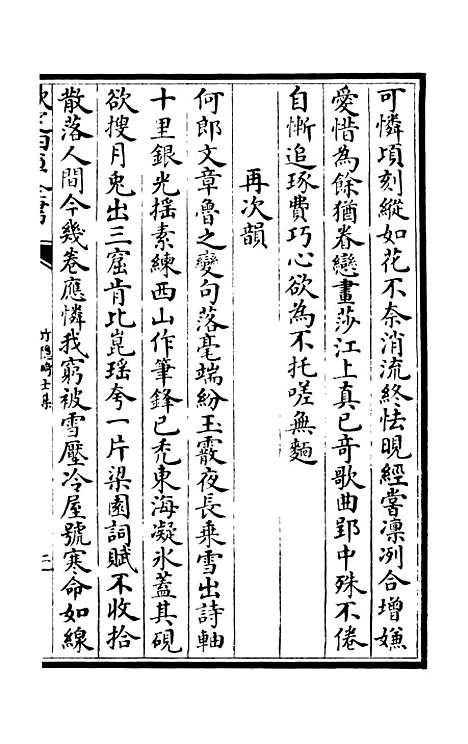 可憐頃刻縱如花不奈消流終怯晛經嘗凛冽合增嫌
愛惜為餘猶眷戀畫莎江上真已竒歌曲郢中殊不倦
自慚追琢費巧心欲為不托嗟無麵
再次韻
何郎文章魯之變句落毫端紛玉霰夜長乗雪出詩軸
十里銀光揺素練西山作筆鋒已秃東海凝氷蓋其硯
欲搜月兎出三窟肯比崑瑶夸一片梁園詞賦不收拾
散落人間今幾卷應憐我窮被雪壓冷屋號寒命如線
竹隠畸士集